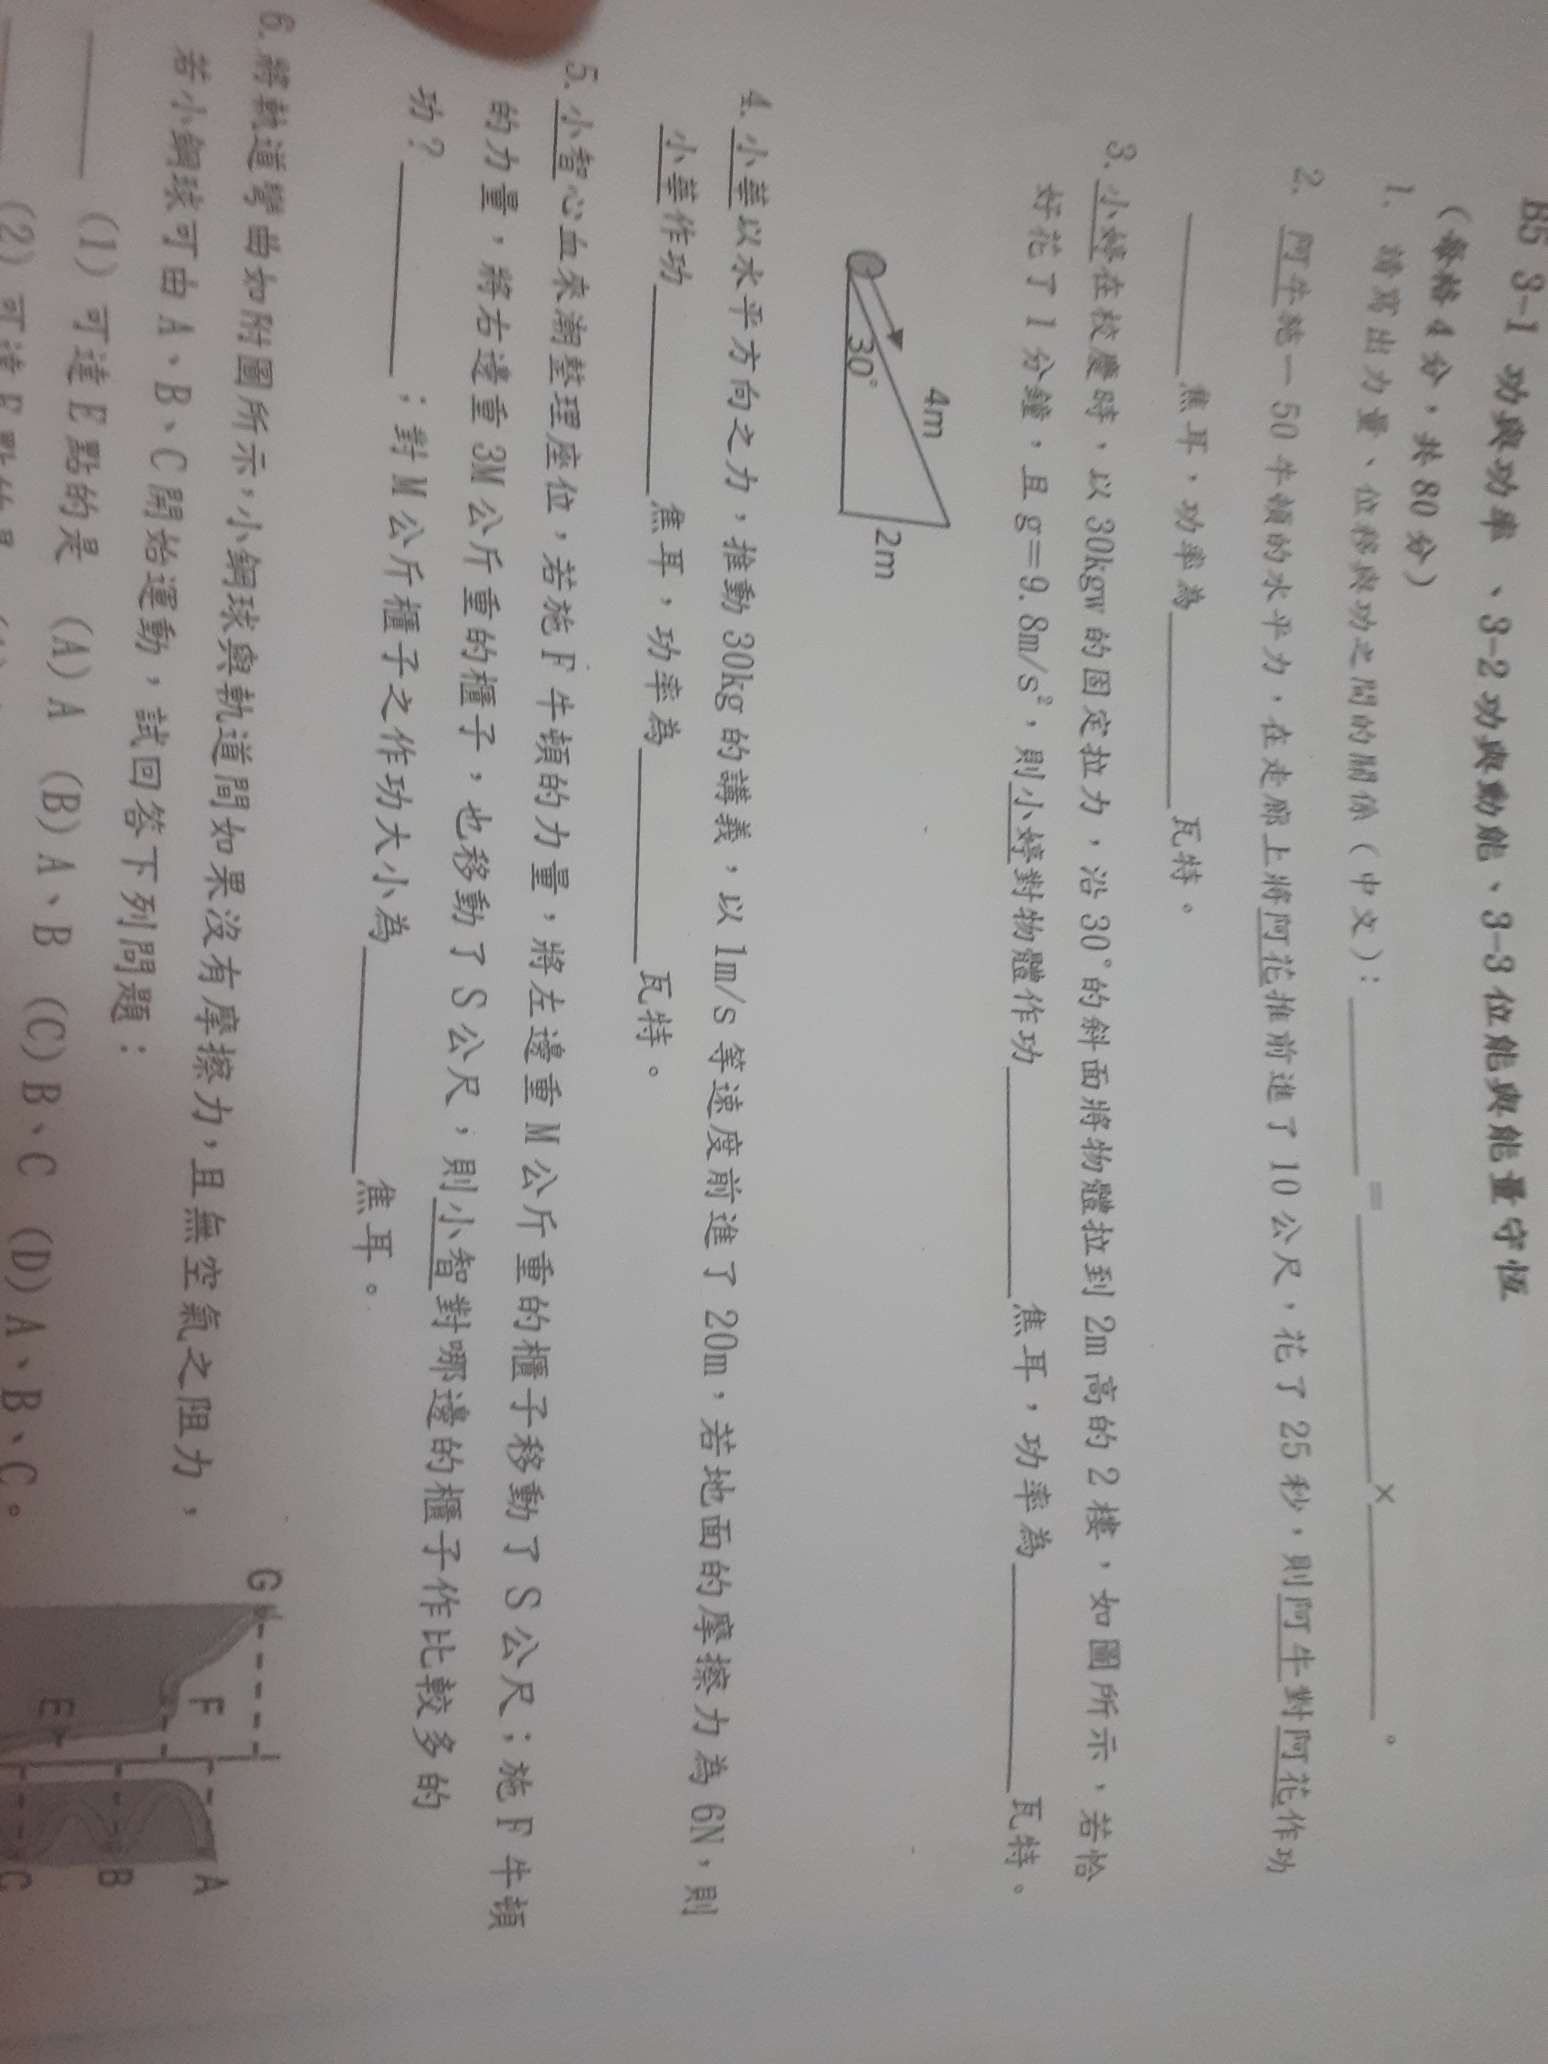 B5 3-1 功與功率、3-2功與動能、3-3位能與能量守恆
(每格4分，共80分)
1. 請寫出力量、位移與功之間的關係(中文)：＿＿＿＝＿＿＿×＿＿＿。
2. 阿牛施一50牛頓的水平力，在走廊上將阿花推前進了10公尺，花了25秒，則阿牛對阿花作功
＿＿＿焦耳，功率為＿＿＿瓦特。
3. 小婷在校慶時，以30kgw的固定拉力，沿30°的斜面將物體拉到2m高的2樓，如圖所示，若恰
好花了1分鐘，且g=9.8m/s²，則小婷對物體作功＿＿＿焦耳，功率為＿＿＿瓦特。
4m
30°
2m
4. 小華以水平方向之力，推動30kg的講義，以1m/s等速度前進了20m，若地面的摩擦力為6N，則
小華作功＿＿＿焦耳，功率為＿＿＿瓦特。
5. 小智心血來潮整理座位，若施F牛頓的力量，將左邊重M公斤重的櫃子移動了S公尺；施F牛頓
的力量，將右邊重3M公斤重的櫃子，也移動了S公尺，則小智對哪邊的櫃子作比較多的
功？＿＿＿；對M公斤櫃子之作功大小為＿＿＿焦耳。
6. 將軌道彎曲如附圖所示，小鋼球與軌道間如果沒有摩擦力，且無空氣之阻力，
若小鋼球可由A、B、C開始運動，試回答下列問題：
＿＿＿(1)可達E點的是 (A)A (B)A、B (C)B、C (D)A、B、C。
(2)可達F點的是
G
F
E
A
B
C